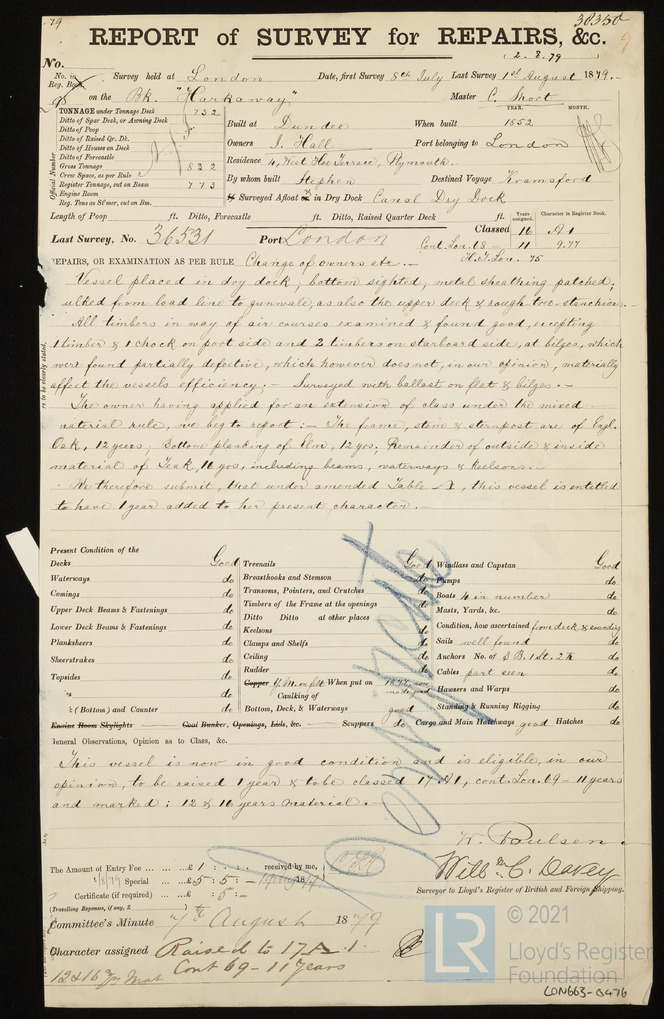 79
38350
REPORT of SURVEY for REPAIRS, &c. 9
(2.8.79
No.
No. in Reg. Book. Survey held at London Date, first Survey 8th July Last Survey 1st August 1879.
98 on the Bk. "Harkaway" Master C. Short
YEAR. MONTH.
TONNAGE under Tonnage Deck 732
Ditto of Spar Deck, or Awning Deck
Ditto of Poop
Ditto of Raised Qr. Dk.
Ditto of Houses on Deck
Ditto of Forecastle
Gross Tonnage 832
Crew Space, as per Rule
Register Tonnage, cut on Beam 773
Engine Room
Reg. Tons as St'mer, cut on Bm.
Official Number
Built at Dundee When built 1852
Owners J. Hall Port belonging to London
Residence 4, West Hoe Terrace, Plymouth.
By whom built Stephen Destined Voyage
If Surveyed Afloat or in Dry Dock Canal Dry Dock
Length of Poop ft. Ditto, Forecastle ft. Ditto, Raised Quarter Deck ft.
Years assigned. Character in Register Book.
Classed 16 A1
Last Survey, No. 36531 Port London
Cont. Lon. 68 – 11 9.77
H.T. Lon. 75
REPAIRS, OR EXAMINATION AS PER RULE Change of owners etc. —
Vessel placed in dry dock, bottom sighted, metal sheathing patched,
ulked from load line to gunwale, as also the upper deck & rough-tree-stancheons. –
All timbers in way of air courses examined & found good, excepting
1 timber & 1 chock on port side and 2 timbers on starboard side, at bilges, which
were found partially defective, which however does not, in our opinion, materially
effect the vessels efficiency. – Surveyed with ballast on flat & bilges. –
The owner having applied for an extension of class under the mixed
material rule, we beg to report: – The frame, stem & sternpost are of Engl.
Oak, 12 years; Bottom planking of Elm, 12 yrs; Remainder of outside & inside
material of Teak, 16 yrs, including beams, waterways & keelsons. –
We therefore submit, that under amended Table A, this vessel is entitled
to have 1 year added to her present character. –
rs to be clearly stated.
Present Condition of the
Decks Good
Waterways do
Comings do
Upper Deck Beams & Fastenings do
Lower Deck Beams & Fastenings do
Planksheers do
Sheerstrakes do
Topsides do
's do
(Bottom) and Counter do
Engine Room Skylights — Coal Bunker, Openings, Lids, &c. — Scuppers do
Treenails Good
Breasthooks and Stemson do
Transoms, Pointers, and Crutches do
Timbers of the Frame at the openings do
Ditto Ditto at other places do
Keelsons do
Clamps and Shelfs do
Ceiling do
Rudder do
Copper Y.M. on felt When put on 1877, now made good
Caulking of
Bottom, Deck, & Waterways good
Windlass and Capstan Good
Pumps do
Boats 4 in number do
Masts, Yards, &c. do
Condition, how ascertained from deck & sounding
Sails well found do
Anchors No. of 3 B. 1 St. 2 K do
Cables part seen do
Hawsers and Warps do
Standing & Running Rigging do
Cargo and Main Hatchways good Hatches do
General Observations, Opinion as to Class, &c.
This vessel is now in good condition and is eligible, in our
opinion, to be raised 1 year & to be classed 17 A1, cont. Lon. 69 – 11 years
and marked: 12 & 16 years material. –
W. Paulsen
Will. C. Davey
Surveyor to Lloyd's Register of British and Foreign Shipping.
The Amount of Entry Fee ... £ 1 : : received by me,
1/8/79 Special ... £ 5 : 5 – 187
Certificate (if required) ... £ : 5 –
(Travelling Expenses, if any, £
Committee's Minute 7th August 1879
Character assigned Raised to 17 A.1
Cont 69 – 11 Years
12 & 16 yr Mat
© 2021
LR
Lloyd's Register
Foundation
LON663-0476